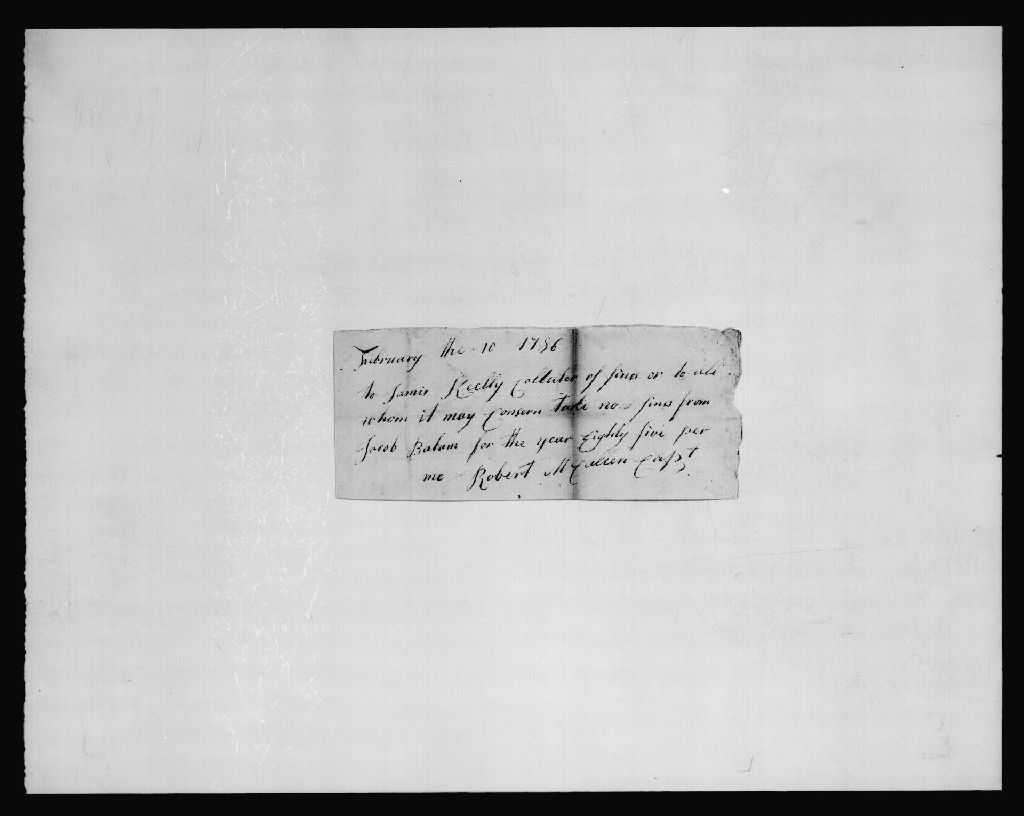 February the 10 1786
to Jamis Keelly Collater of fines or to all
whom it may Consern take no fines from
Jacob Balam for the year Eighty five per
me Robert McCallen Capt